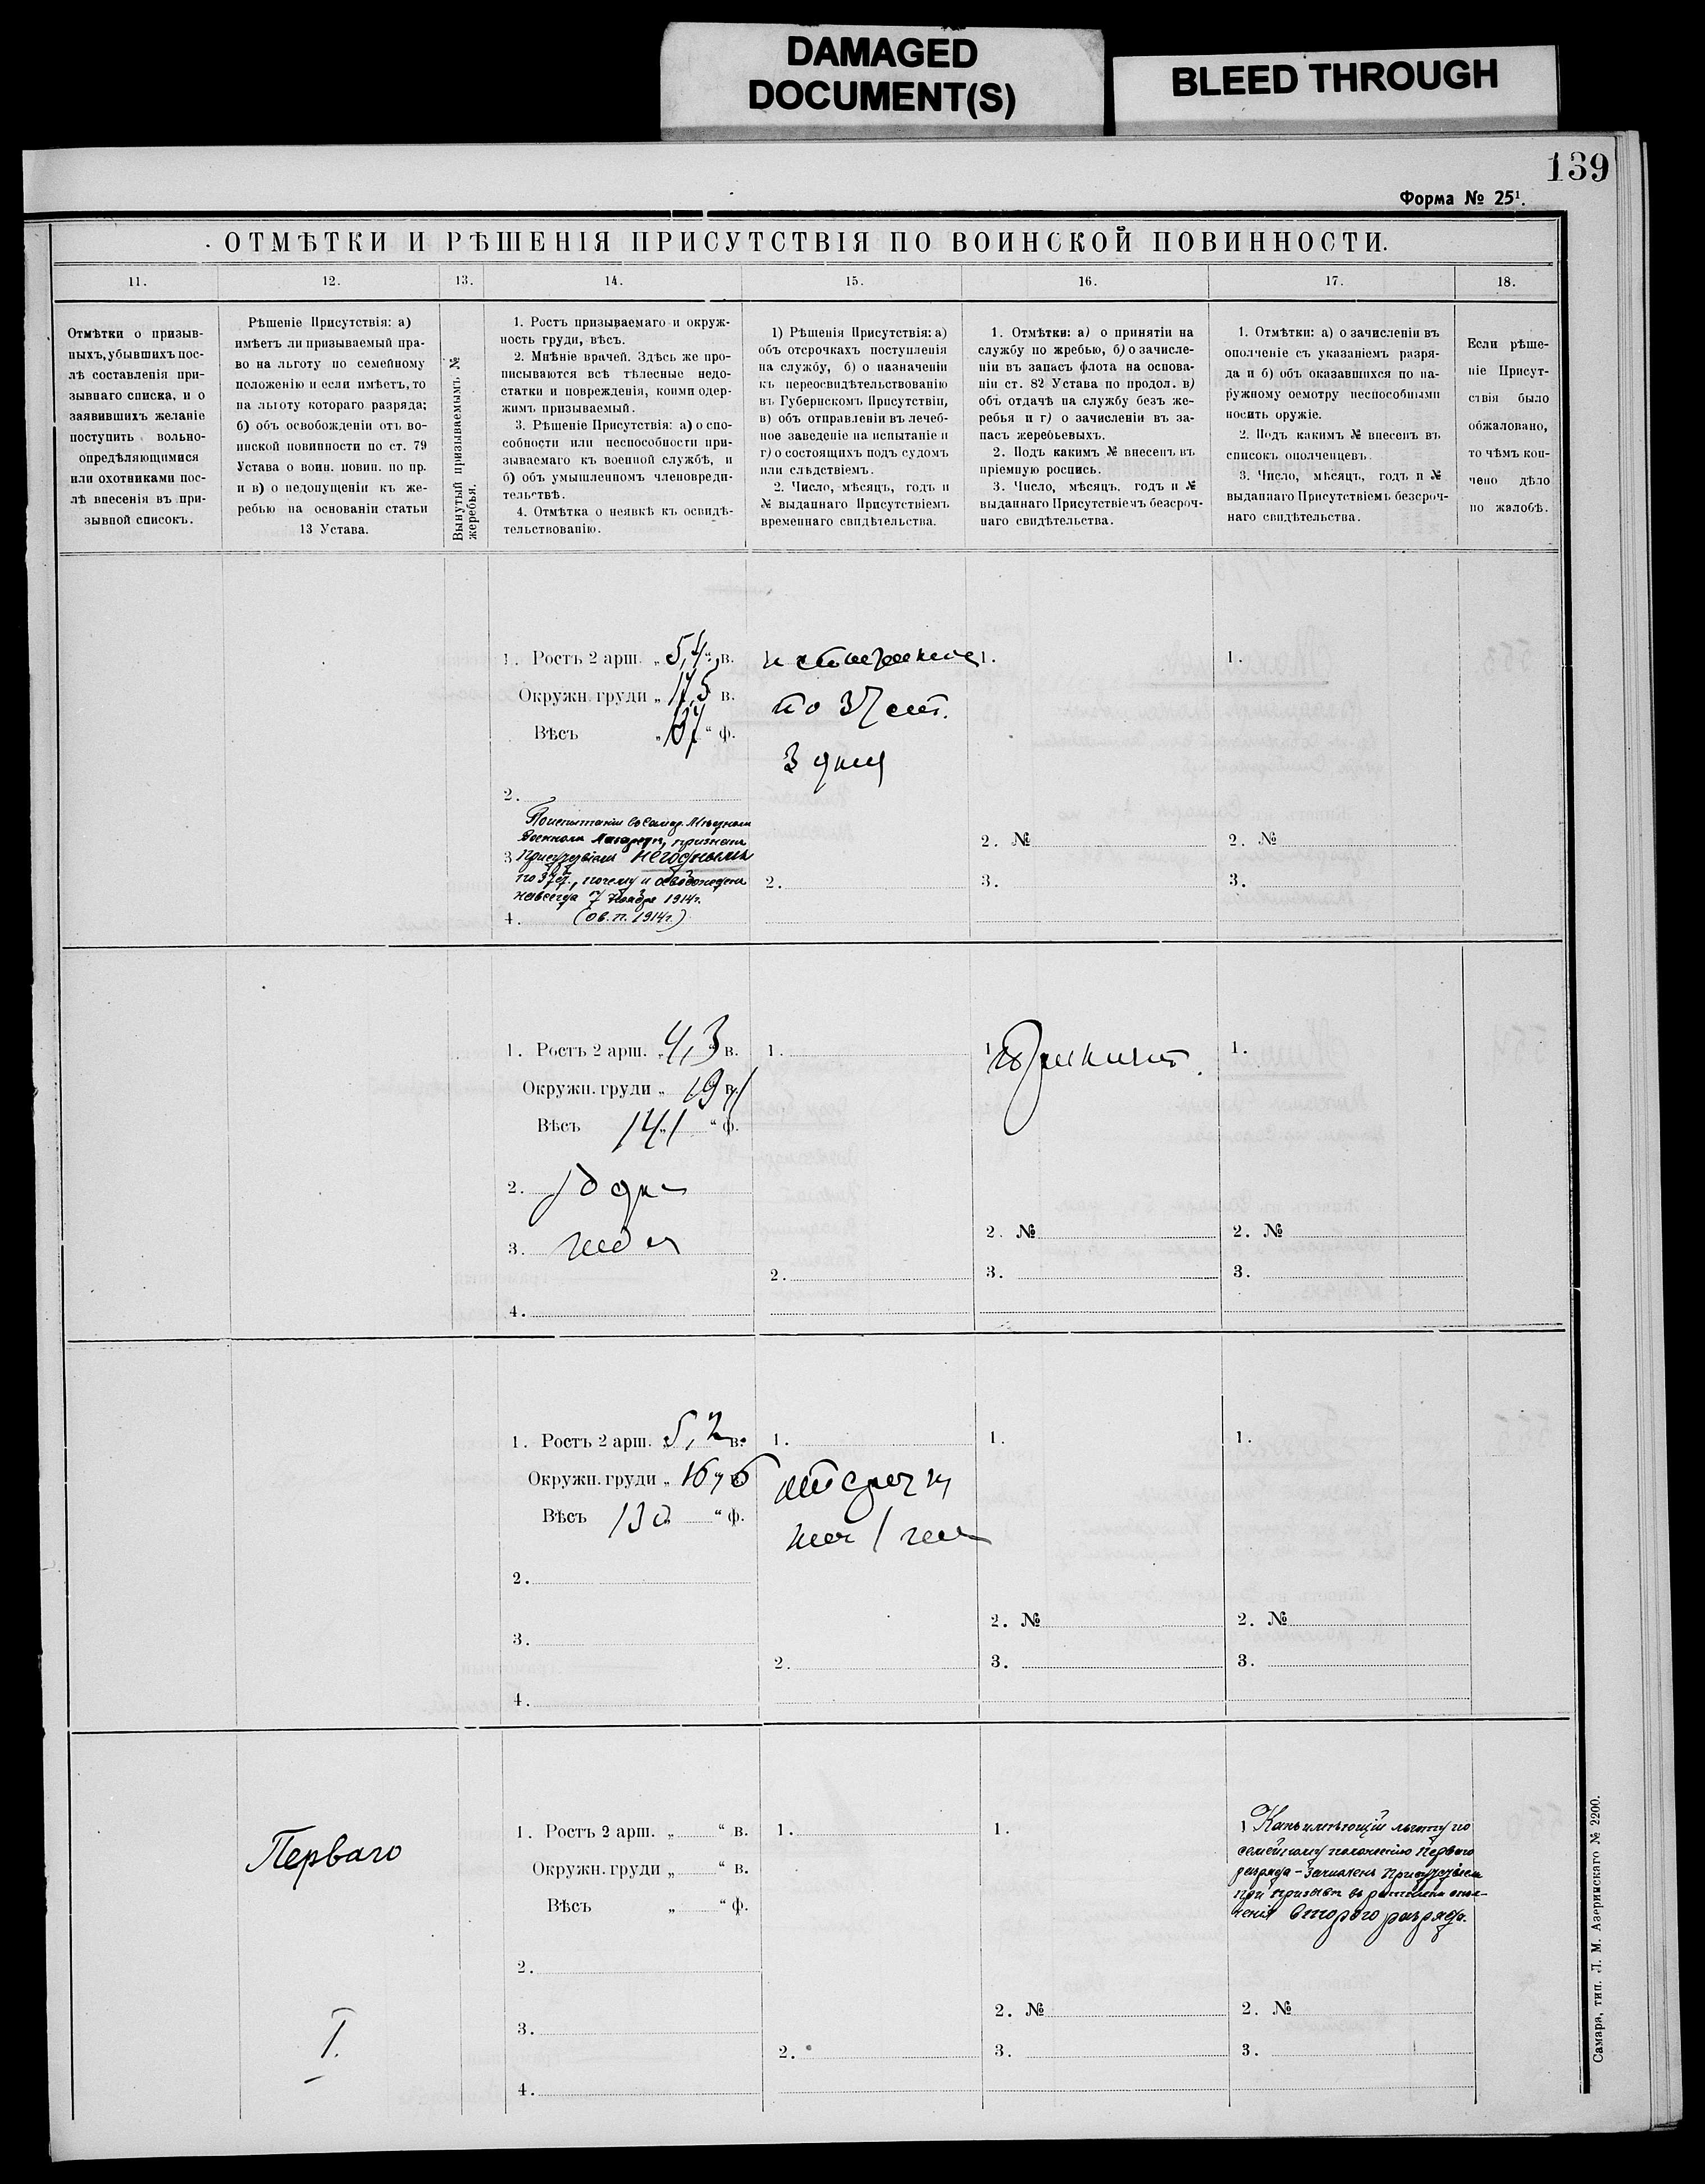 DAMAGED
DOCUMENT(S)
BLEED THROUGH
139
Форма № 25¹.
ОТМѢТКИ И РѢШЕНІЯ ПРИСУТСТВІЯ ПО ВОИНСКОЙ ПОВИННОСТИ.
11.
12.
13.
14.
15.
16.
17.
18.
Отмѣтки о призыв-
ныхъ, убывшихъ пос-
лѣ составленія при-
зывнаго списка, и о
заявившихъ желаніе
поступить вольно-
опредѣляющимися
или охотниками пос-
лѣ внесенія въ при-
зывной списокъ.
Рѣшеніе Присутствія: а)
имѣетъ ли призываемый пра-
во на льготу по семейному
положенію и если имѣетъ, то
на льготу котораго разряда;
б) объ освобожденіи отъ во-
инской повинности по ст. 79
Устава о воин. повин. по пр.
и в) о недопущеніи къ же-
ребью на основаніи статьи
13 Устава.
Вынутый призываемымъ №
жеребья.
1. Ростъ призываемаго и окруж-
ность груди, вѣсъ.
2. Мнѣніе врачей. Здѣсь же про-
писываются всѣ тѣлесные недо-
статки и поврежденія, коими одер-
жимъ призываемый.
3. Рѣшеніе Присутствія: а) о спо-
собности или неспособности при-
зываемаго къ военной службѣ, и
б) объ умышленномъ членовреди-
тельствѣ.
4. Отмѣтка о неявкѣ къ освидѣ-
тельствованію.
1) Рѣшенія Присутствія: а)
объ отсрочкахъ поступленія
на службу, б) о назначеніи
къ переосвидѣтельствованію
въ Губернскомъ Присутствіи,
в) объ отправленіи въ лечеб-
ное заведеніе на испытаніе и
г) о состоящихъ подъ судомъ
или слѣдствіемъ.
2. Число, мѣсяцъ, годъ и
№ выданнаго Присутствіемъ
временнаго свидѣтельства.
1. Отмѣтки: а) о принятіи на
службу по жребью, б) о зачисле-
ніи въ запасъ флота на основа-
ніи ст. 82 Устава по продол. в)
объ отдачѣ на службу безъ же-
ребья и г) о зачисленіи въ за-
пасъ жеребьевыхъ.
2. Подъ какимъ № внесенъ въ
пріемную роспись.
3. Число, мѣсяцъ, годъ и №
выданнаго Присутствіемъ безсроч-
наго свидѣтельства.
1. Отмѣтки: а) о зачисленіи въ
ополченіе съ указаніемъ разря-
да и б) объ оказавшихся по на-
ружному осмотру неспособными
носить оружіе.
2. Подъ какимъ № внесенъ въ
списокъ ополченцевъ.
3. Число, мѣсяцъ, годъ и №
выданнаго Присутствіемъ безсроч-
наго свидѣтельства.
Если рѣше-
ніе Присут-
ствія было
обжаловано,
то чѣмъ кон-
чено дѣло
по жалобѣ.
1. Ростъ 2 арш. „ 5,4 “ в.
Окружн. груди „ 17,5 в.
Вѣсъ „ “ ф.
2.
По испытаніи въ Самар. Мѣстномъ
Военномъ Лазаретѣ, признанъ
3 Присутствіемъ негоднымъ
по 37 ст., почему и освобожденъ
навсегда 7 Ноября 1914 г.
4. (ов. п. 1914 г.)
по 37 ст.
3 дня
2.
1.
2. №
3.
1.
2. №
3.
1. Ростъ 2 арш. „ 4,3 в.
Окружн. груди „ 19 в.
Вѣсъ 141 “ ф.
2.
3. годен
4.
1.
2.
1. Принят.
2. №
3.
1.
2. №
3.
1. Ростъ 2 арш. „ 5,2 в.
Окружн. груди „ 16,6
Вѣсъ 130 “ ф.
2.
3.
4.
1.
отсроч
на 1 год
2.
1.
2. №
3.
1.
2. №
3.
Перваго
I.
1. Ростъ 2 арш. „ “ в.
Окружн. груди „ “ в.
Вѣсъ „ “ ф.
2.
3.
4.
1.
2.
1.
2. №
3.
1 Какъ имѣющій льготу по
семейному положенію перваго
разряда – зачисленъ Присутствіемъ
при призывѣ въ ратники опол-
ченія второго разряда.
2. №
3.
Самара, тип. Л. М. Азеринскаго № 2200.